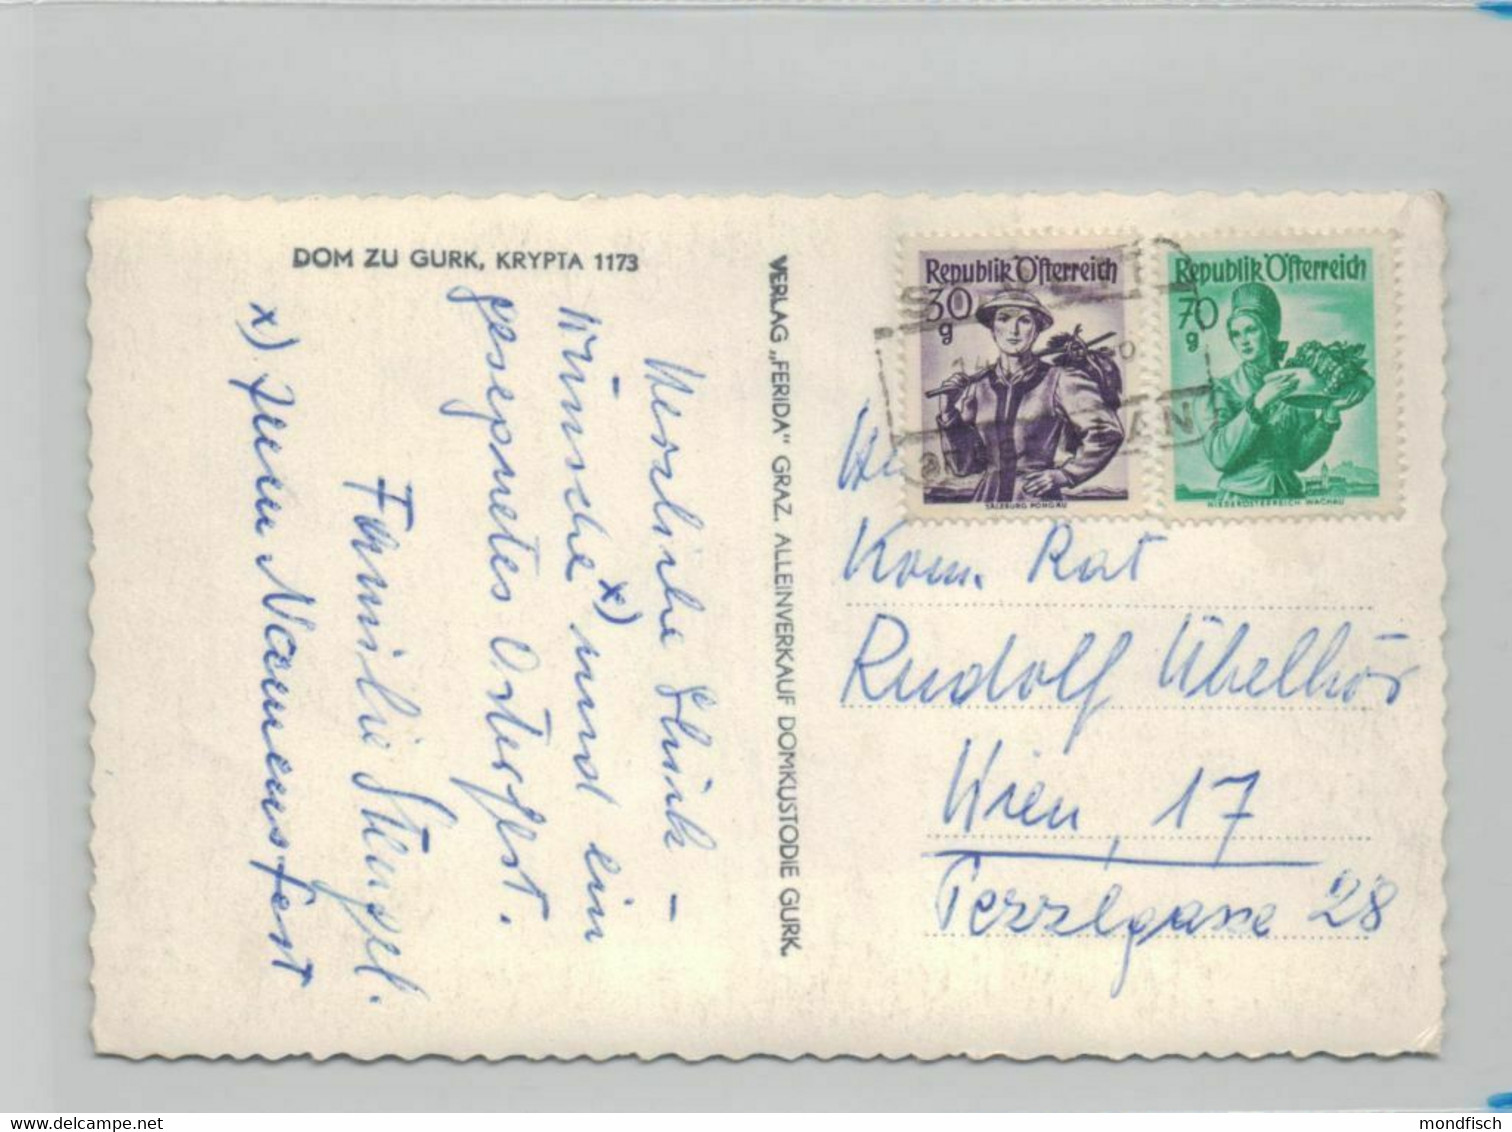 DOM ZU GURK, KRYPTA 1173
Herzliche Glück-
wünsche x) und ein
gesegnetes Osterfest.
Familie Stenzel.
x) zum Namensfest
VERLAG „FERIDA" GRAZ. ALLEINVERKAUF DOMKUSTODIE GURK.
Republik Österreich
30 g
SALZBURG PONGAU
Republik Österreich
70 g
NIEDERÖSTERREICH WACHAU
Kom. Rat
Rudolf Übelhör
Wien, 17
Pezzlgasse 28
mondfisch